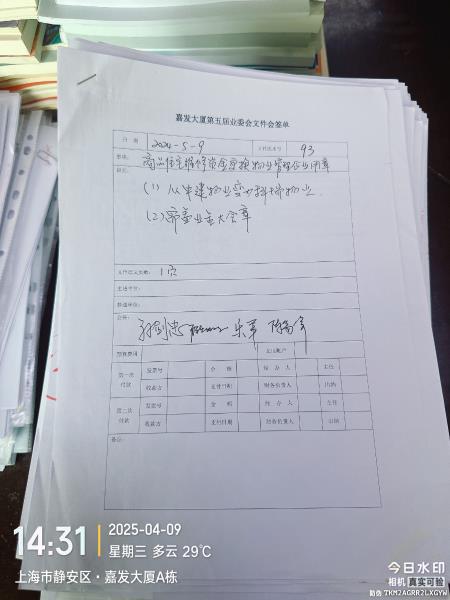 嘉发大厦第五届业委会文件会签单
日 期 2024-5-9 文件流水号 93
事项: 商品住宅维修资金变换物业管理企业用章
(1) 从申建物业变为科瑞物业.
(2) 带盖业主大会章
文件正文页数: 1页
主送单位:
抄送单位:
会签:
预算费用 支出账户
第一次付款 发票号 金 额 经 办 人 主任
收款方 支付日期 财务负责人 出纳
第二次付款 发票号 金 额 经 办 人 主任
收款方 支付日期 财务负责人 出纳
备注:
14:31 2025-04-09
星期三 多云 29℃
上海市静安区·嘉发大厦A栋
今日水印
相机 真实可验
防伪 TKM2AGRR2LXGYW